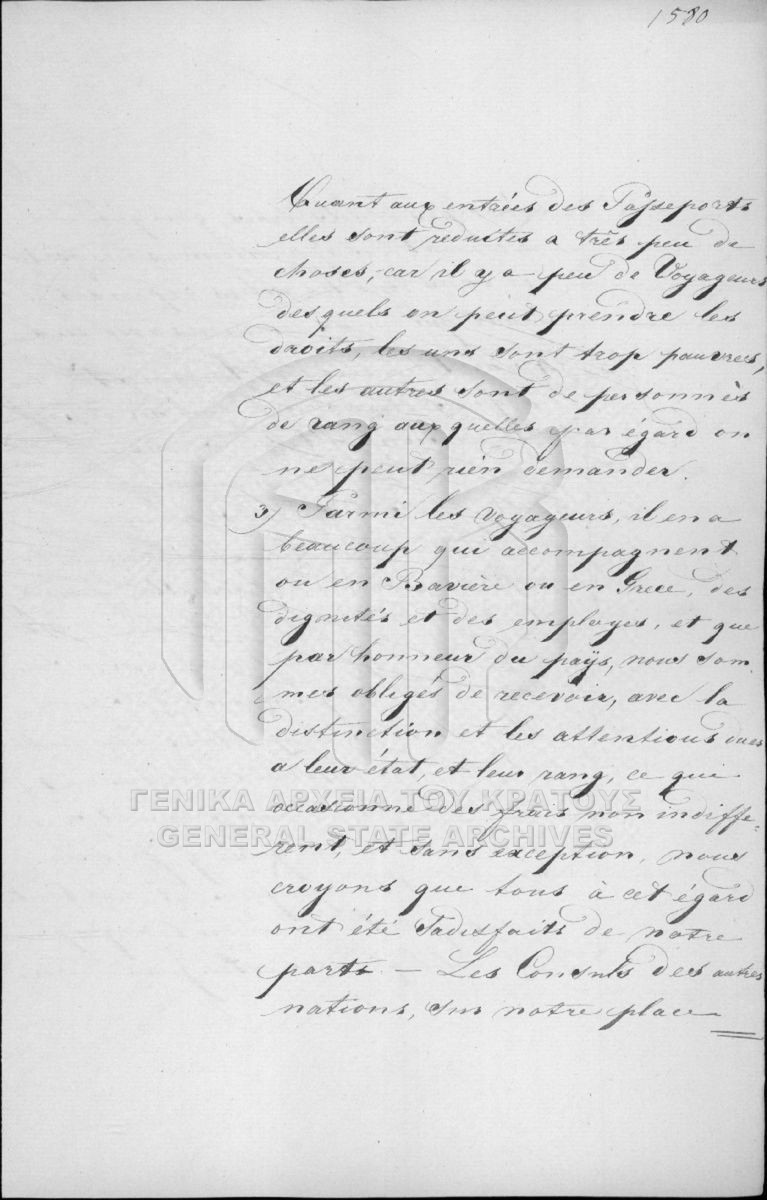 1580
Quant aux entrées des Passeports
elles sont reduites a très peu de
choses, car il y a peu de Voyageurs
desquels on peut prendre les
droits, les uns sont trop pauvres,
et les autres sont de personnes
de rang aux quelles par égard on
ne peut rien demander.
3) Parmi les voyageurs, il en a
beaucoup qui accompagnent
ou en Bavière ou en Grece, des
dignités et des employes, et que
par honneur du pays, nous som
mes obligés de recevoir, avec la
distinction et les attentions dues
a leur état, et leur rang, ce qui
ΓΕΝΙΚΑ ΑΡΧΕΙΑ ΤΟΥ ΚΡΑΤΟΥΣ
occasionne des frais non indiffe=
GENERAL STATE ARCHIVES
rent, et sans exception, nous
croyons que tous à cet égard
ont été Sadisfaits de notre
part. — Les Consuls des autres
nations, sur notre place